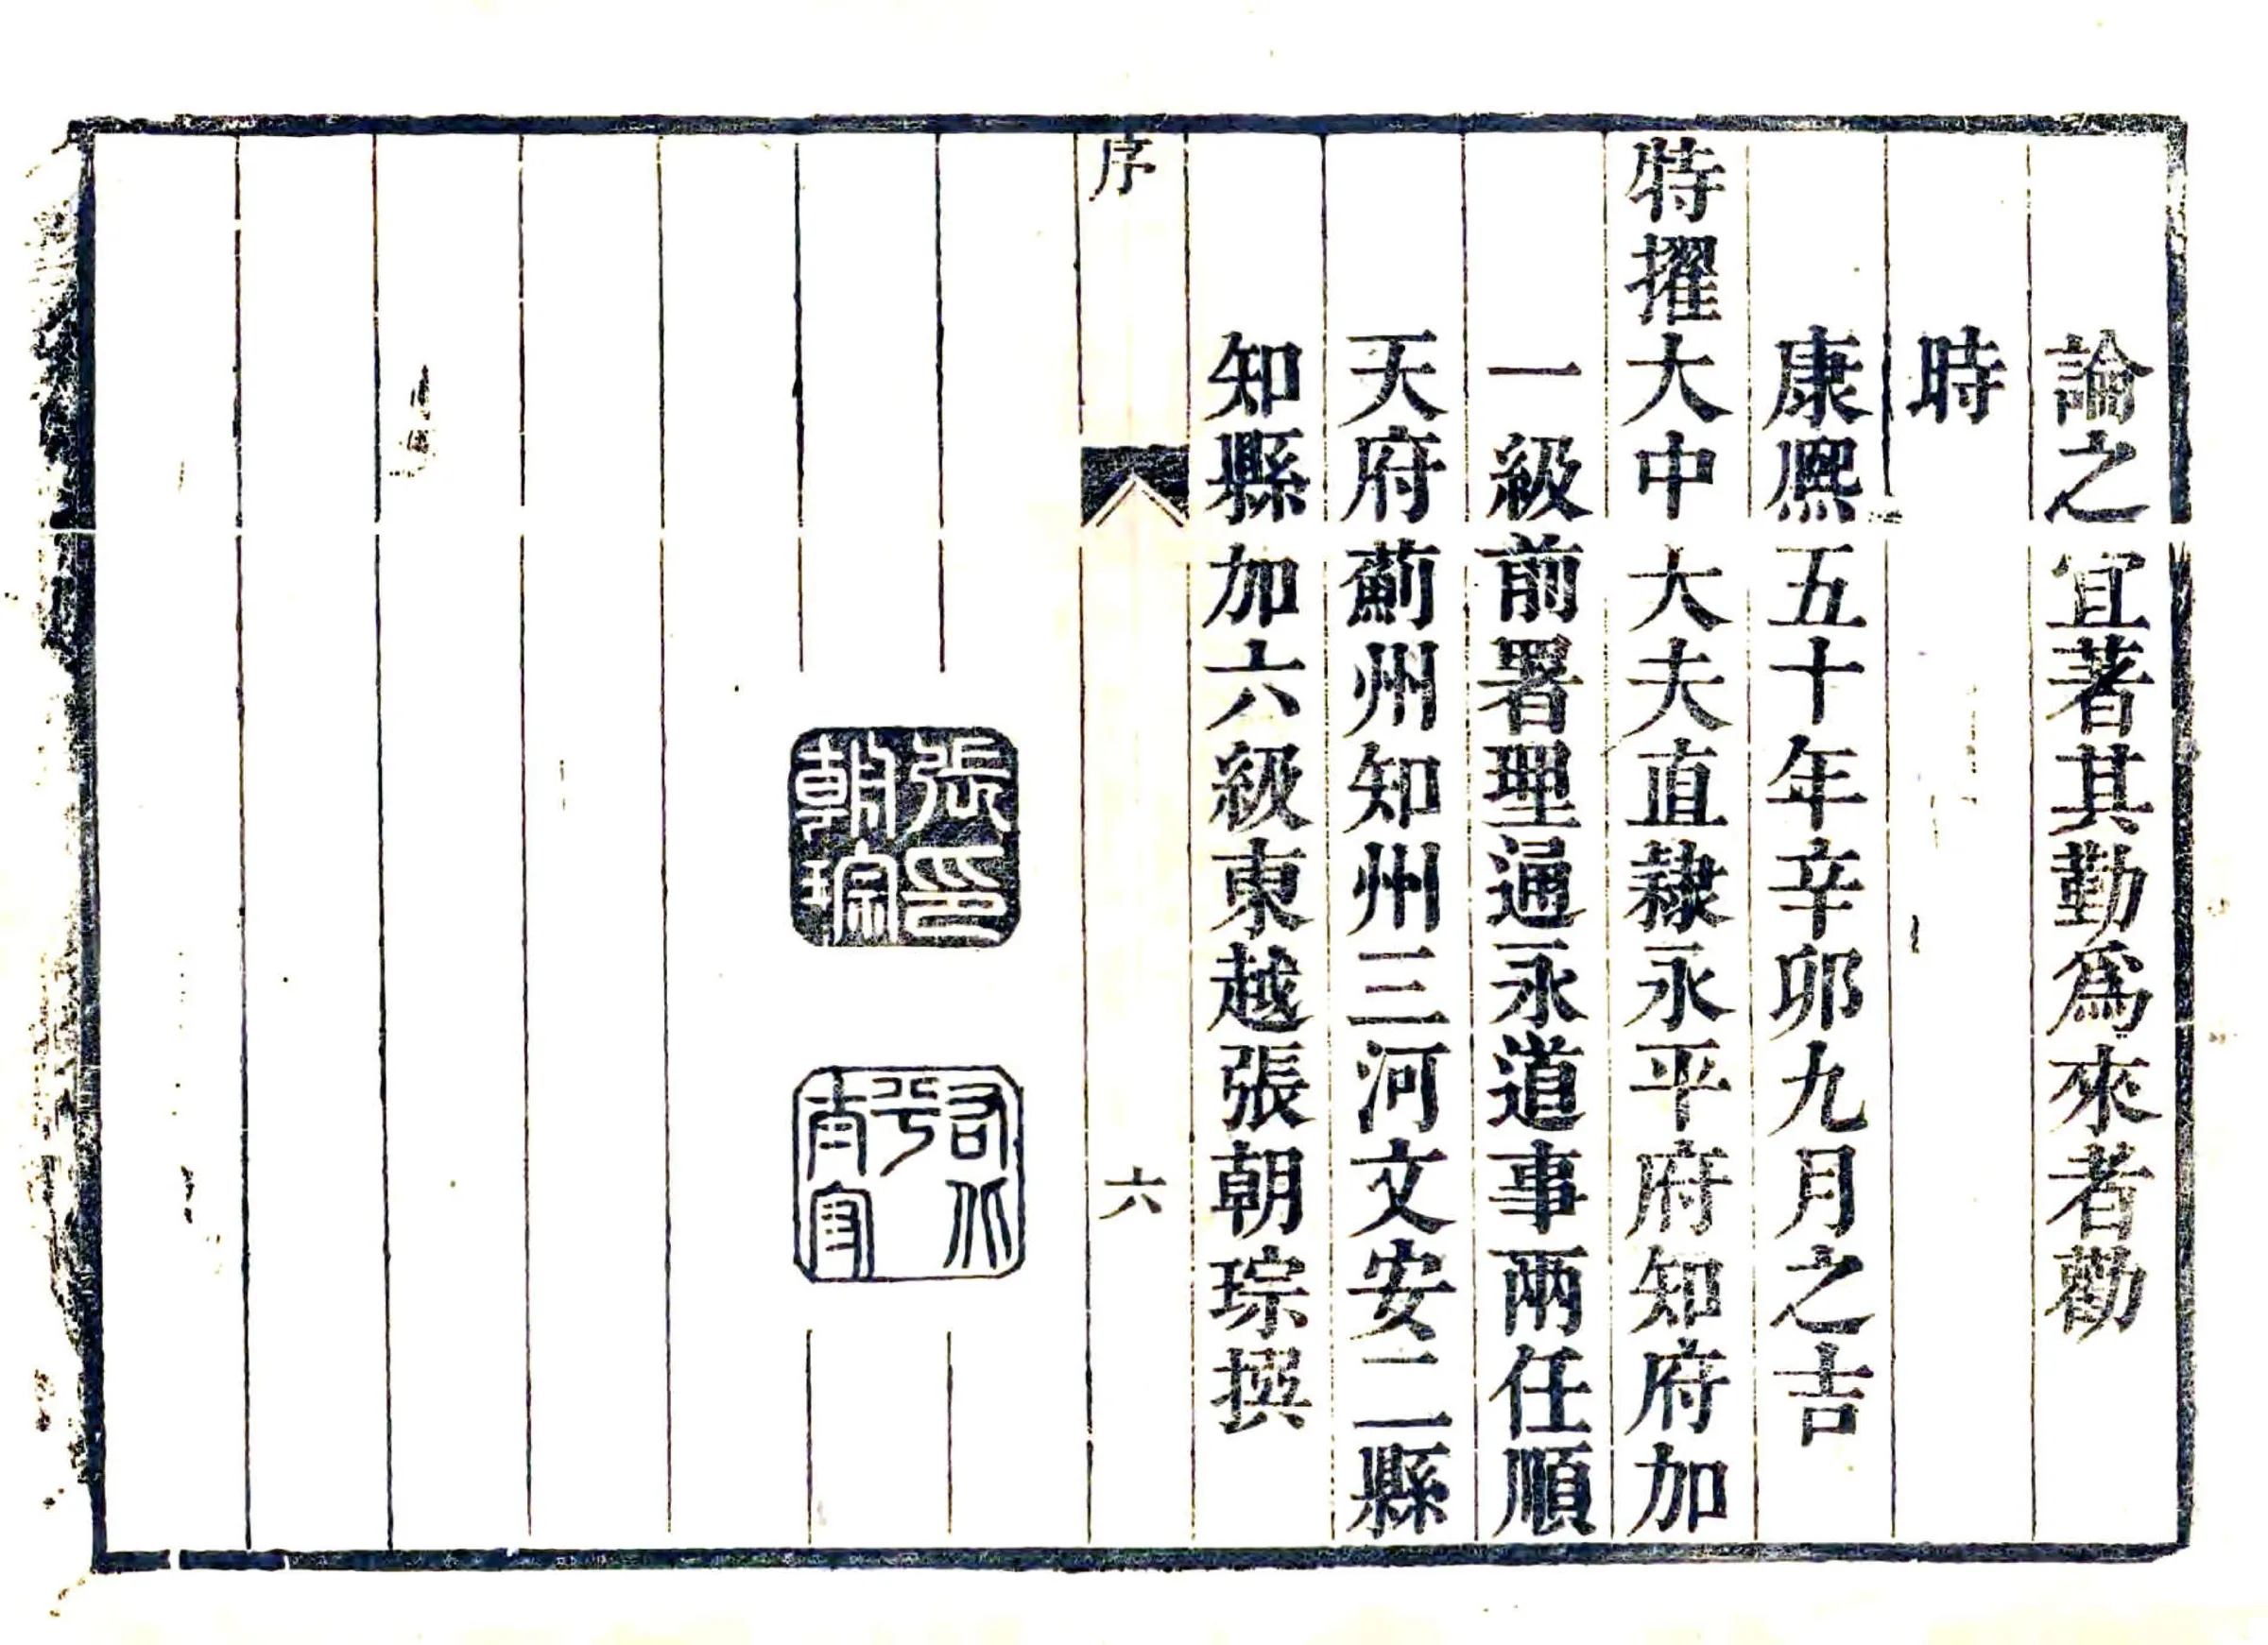 論之宜著其勤爲來者勸
時
康熙五十年辛卯九月之吉
特擢大中大夫直隸永平府知府加
一級前署理通永道事兩任順
天府薊州知州三河文安二縣
知縣加六級東越張朝琮撰
序
六
張印
朝琮